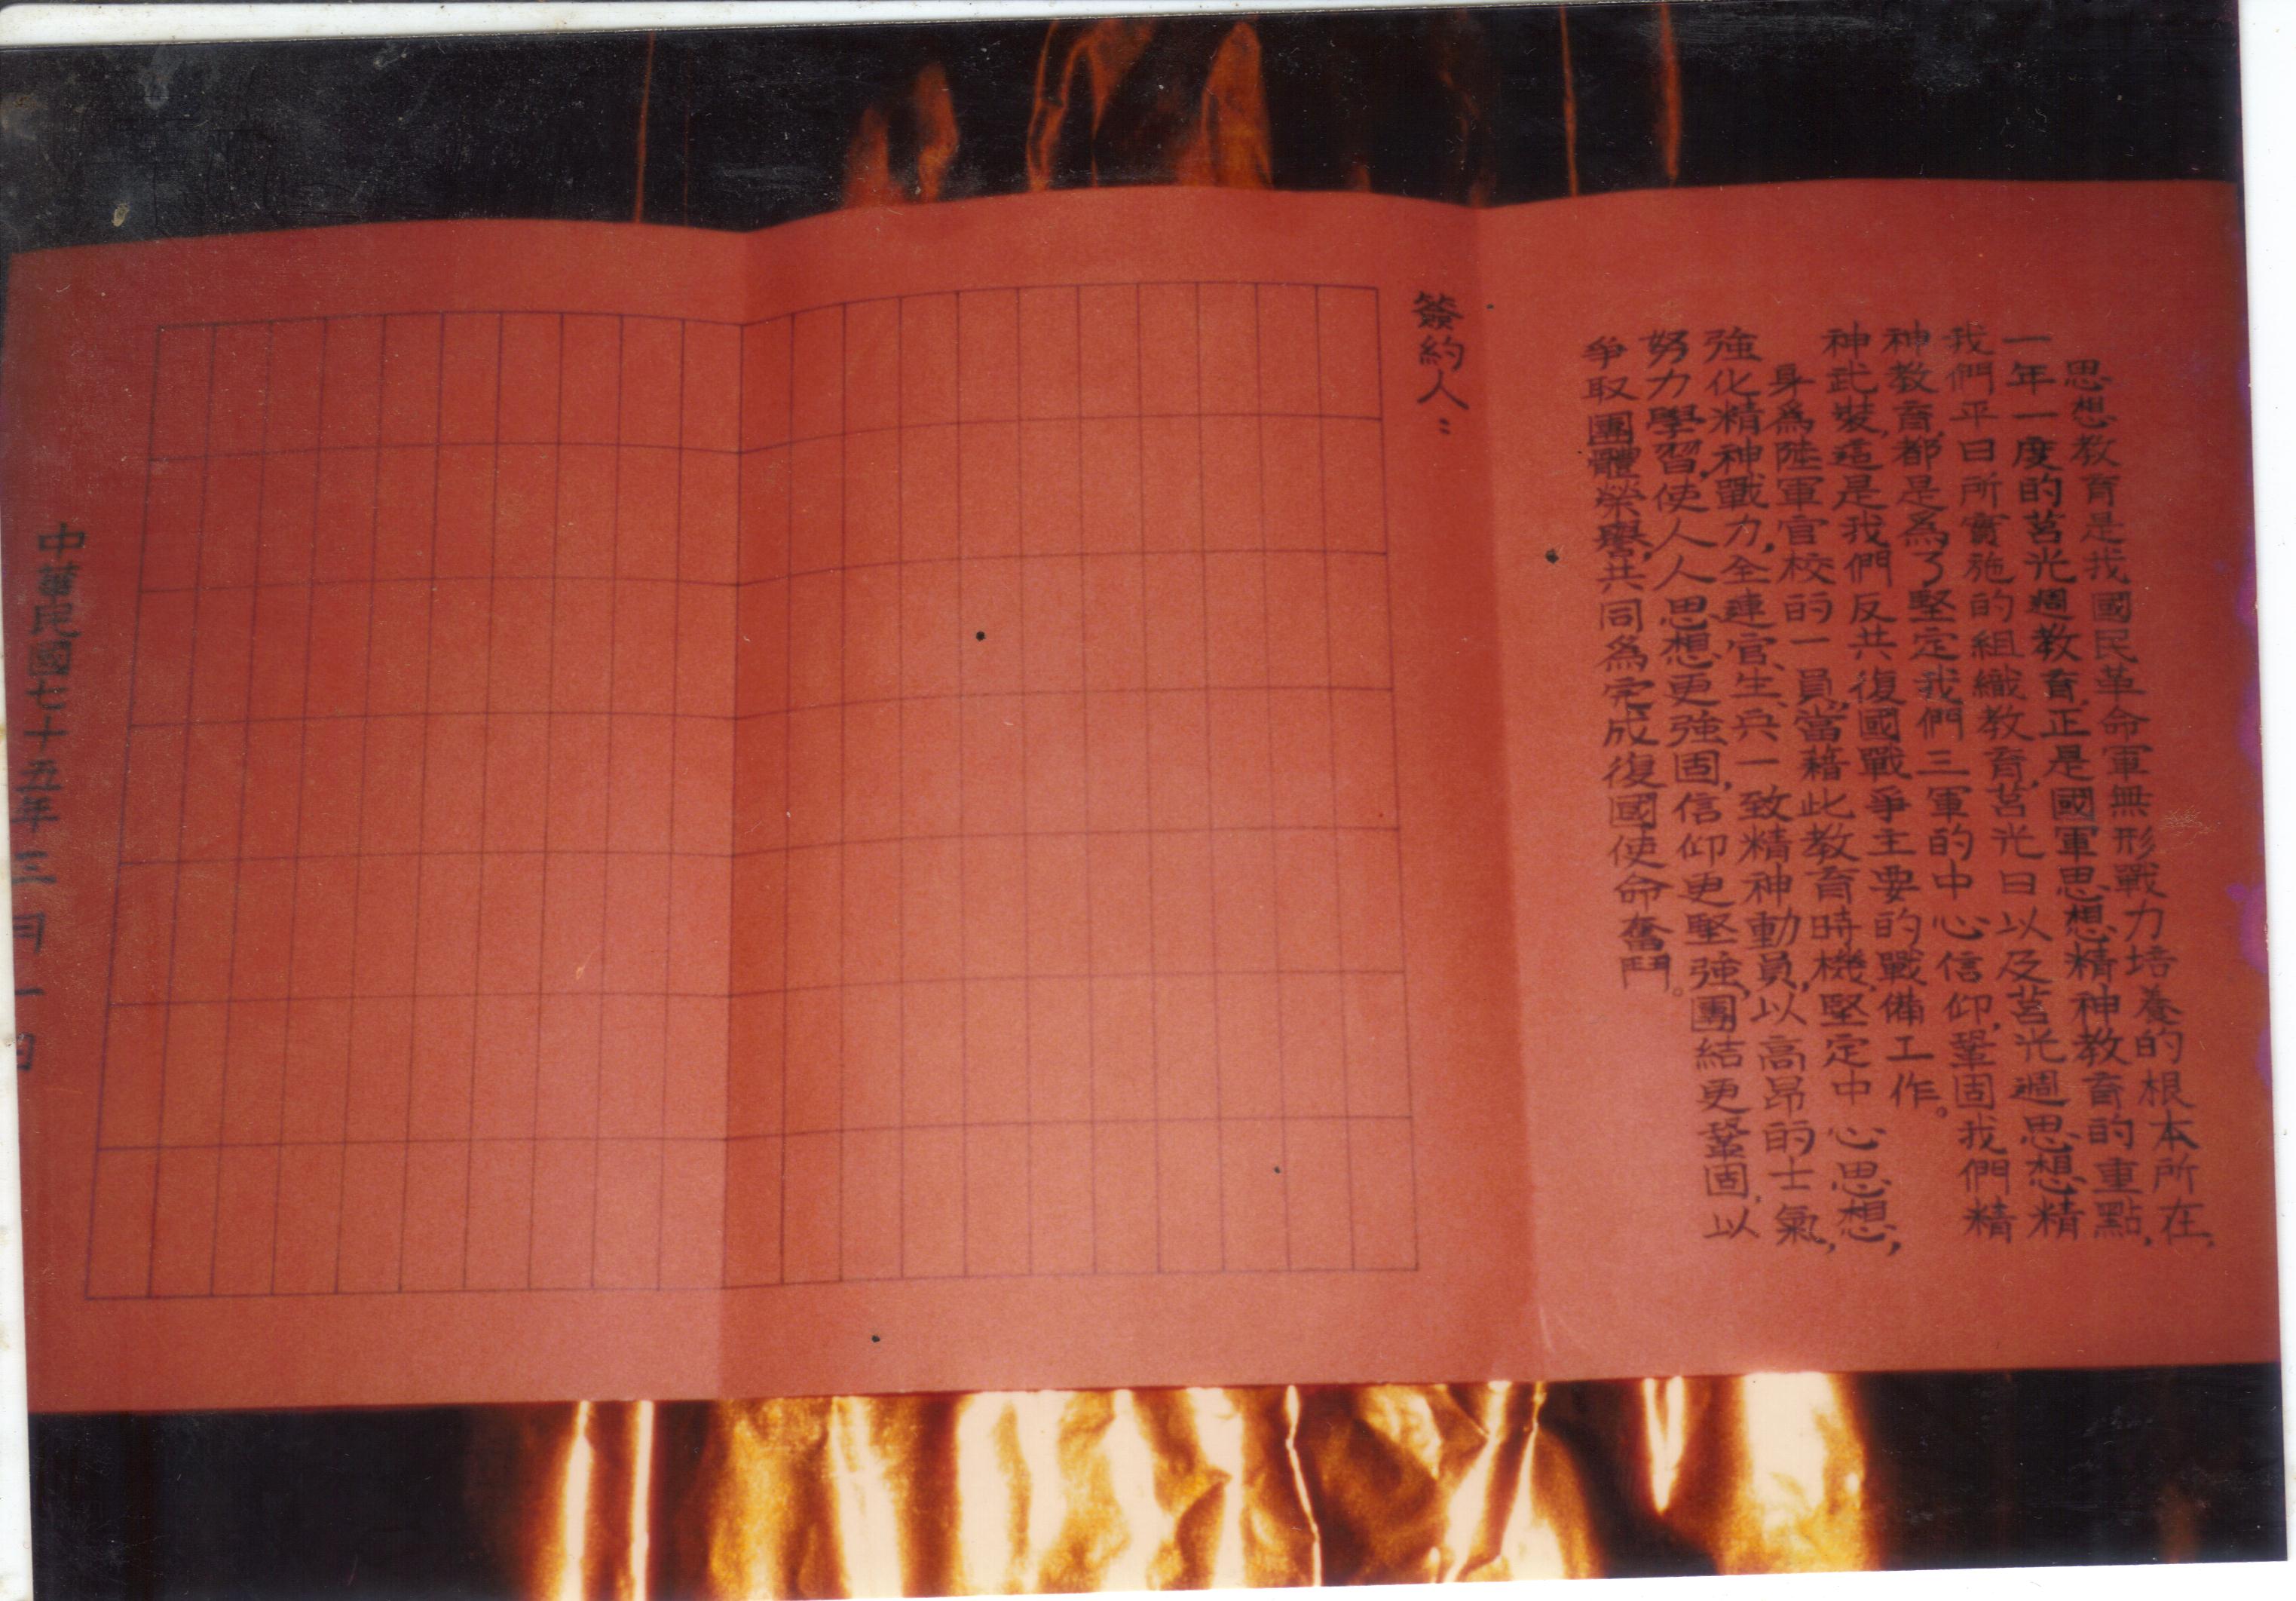 思想教育是我國民革命軍無形戰力培養的根本所在,
一年一度的莒光週教育,正是國軍思想精神教育的重點,
我們平日所實施的組織教育,莒光日以及莒光週思想精
神教育,都是為了堅定我們三軍的中心信仰,鞏固我們精
神武裝,這是我們反共復國戰爭主要的戰備工作。
身為陸軍官校的一員,當藉此教育時機,堅定中心思想,
強化精神戰力,全連官、生、兵一致精神動員,以高昂的士氣,
努力學習,使人人思想更強固,信仰更堅強,團結更鞏固,以
爭取團體榮譽,共同為完成復國使命奮鬥。
簽約人:
中華民國七十五年三月一